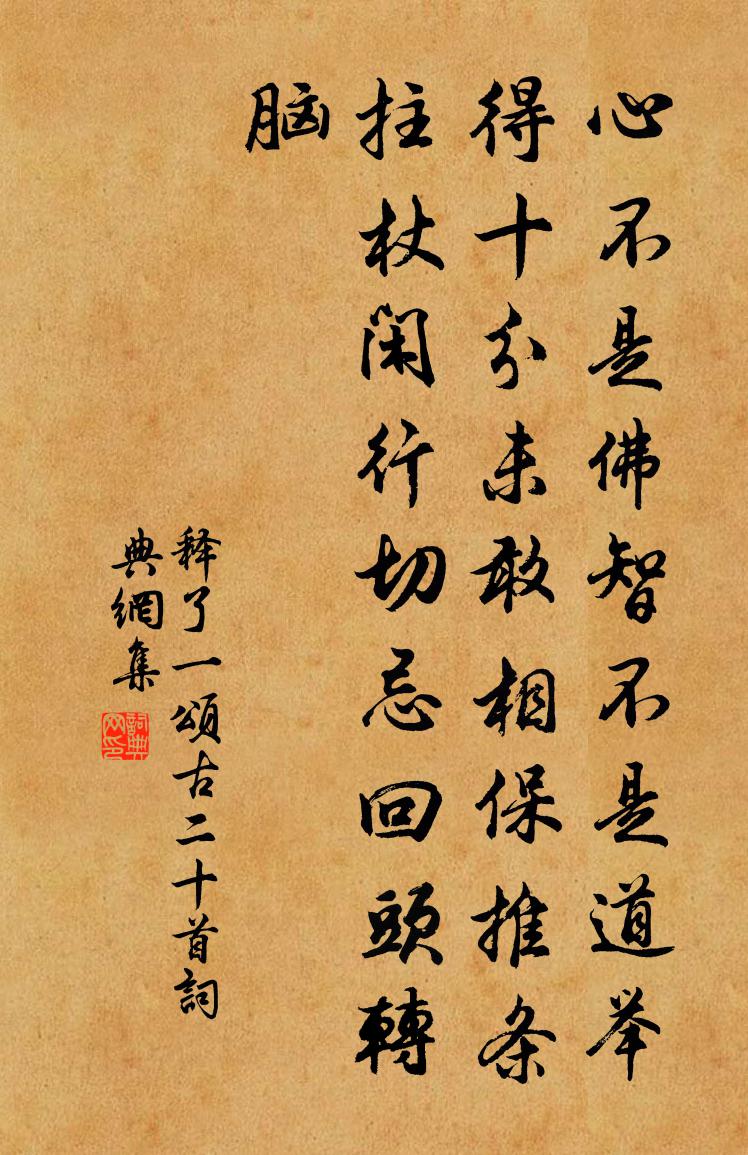 心不是佛智不是道举
得十分未敢相保推条
拄杖闲行切忌回頭轉
脑
释了一頌古二十首詞
典網集
詞典网印